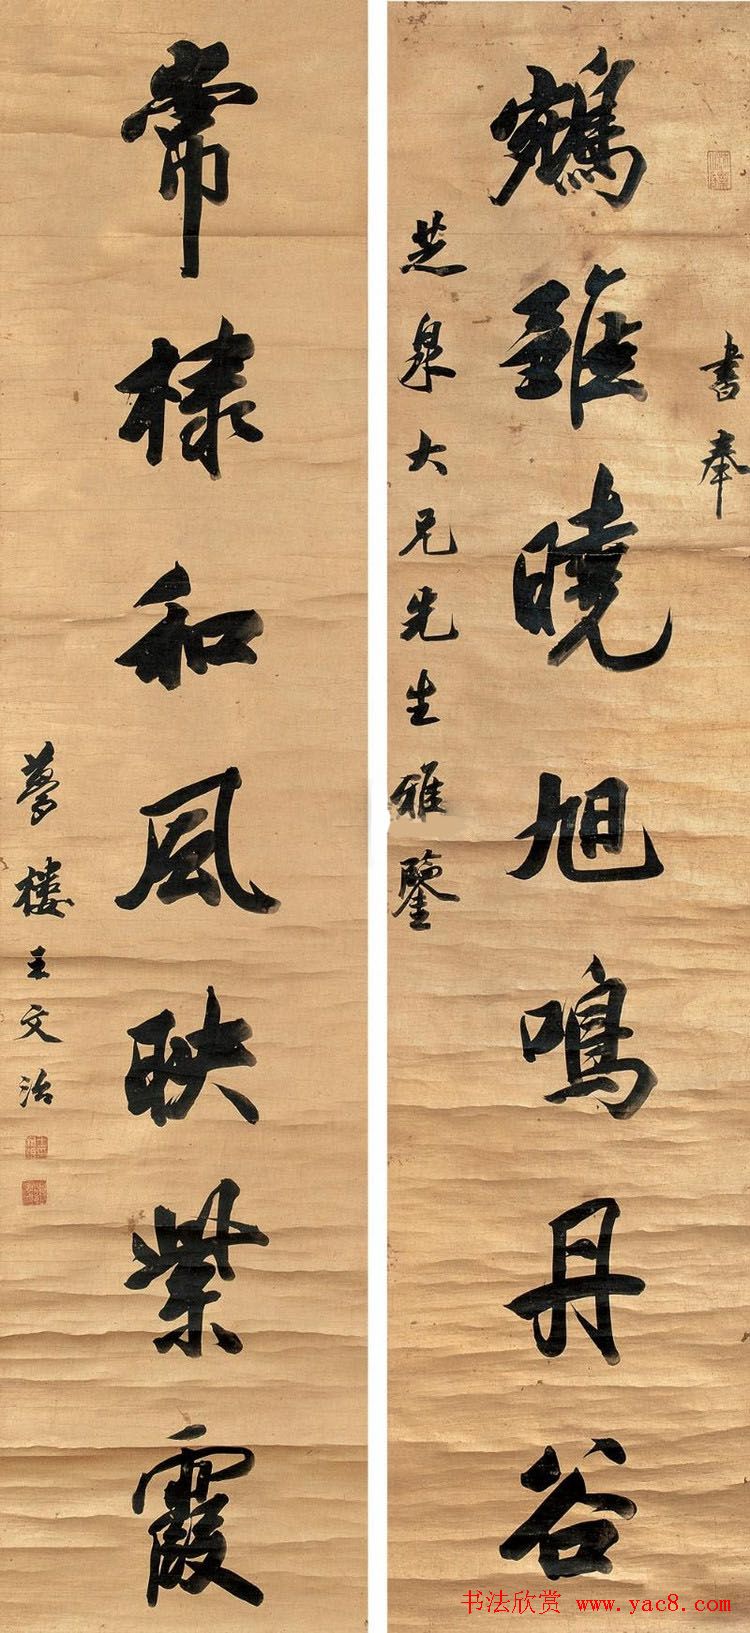 書奉
鵷雛曉旭鳴丹谷
芝泉大兄先生雅鑒
常棣和風映紫霞
夢樓王文治
书法欣赏 www.yac8.com